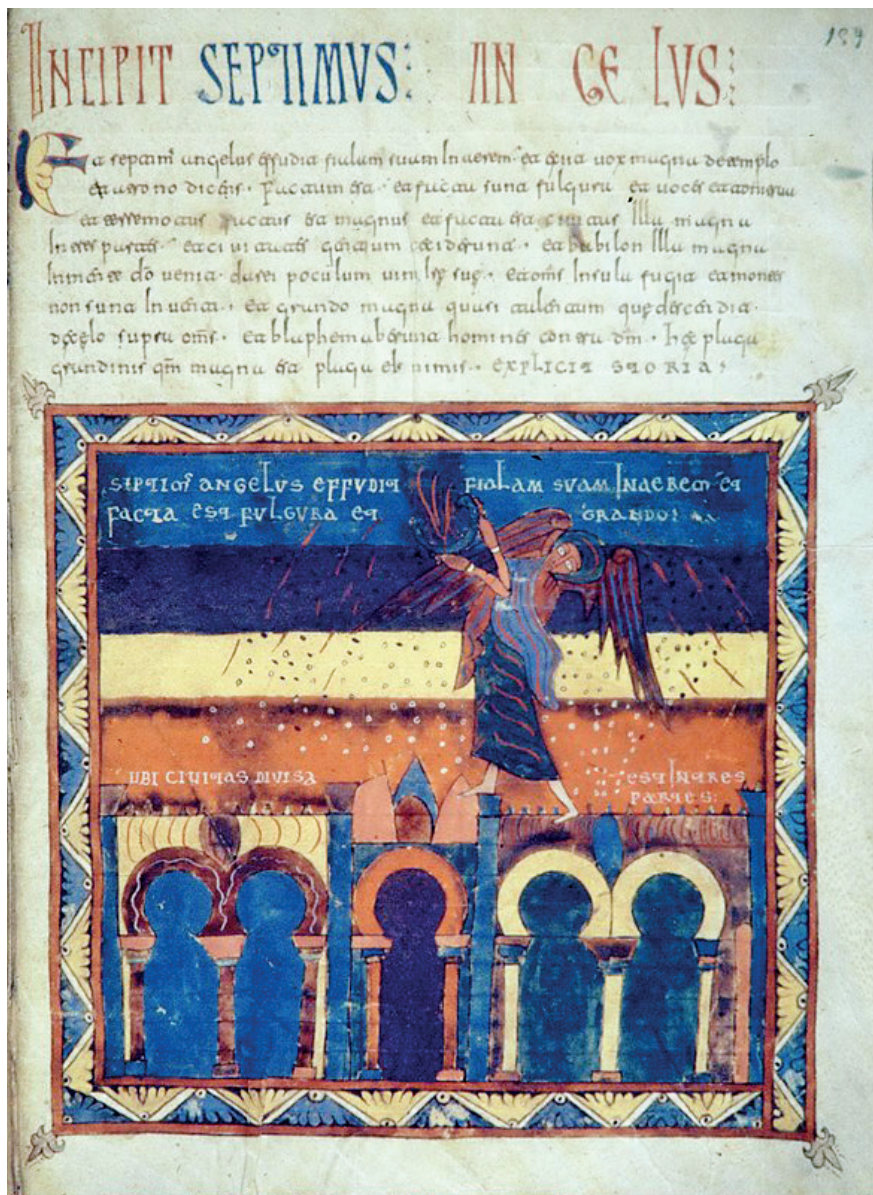 INCIPIT SEPTIMVS: ANGELVS:
Et septim angelus effudit fialam suam In aerem· et exiit uox magna de templo
et a trono dicens· Factum est· et facta sunt fulgura et uoces et tonitrua
et terremotus factus est magnus et facta est ciuitas Illa magna
In tres partes· et ciuitates gentium ceciderunt· et babilon Illa magna
In mente dō venit· darei poculum uini Ire suę· et omīs Insula fugit et montes
non sunt Inuenti· et grando magna quasi talentum quę descendit·
de cęlo supra om̄s· et blaphemaberunt homines contra dm̄· hec plaga
grandinis qm̄ magna est plaga eius nimis· EXPLICIT STORIA:
SEPTIM ANGELVS EFFVDIT FIALAM SVAM INAEREM ET
FACTA EST FVLGVRA ET GRANDO:
UBI CIVITAS DIVISA EST IN TRES
PARTES: